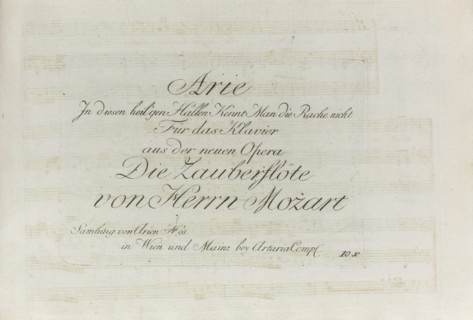 Arie
In diesen heil'gen Hallen Kennt Man die Rache nicht
Für das Klavier
aus der neuen Opera
Die Zauberflöte
von Herrn Mozart
Samlung von Arien
in Wien und Mainz bey Artaria Comp.
10 x